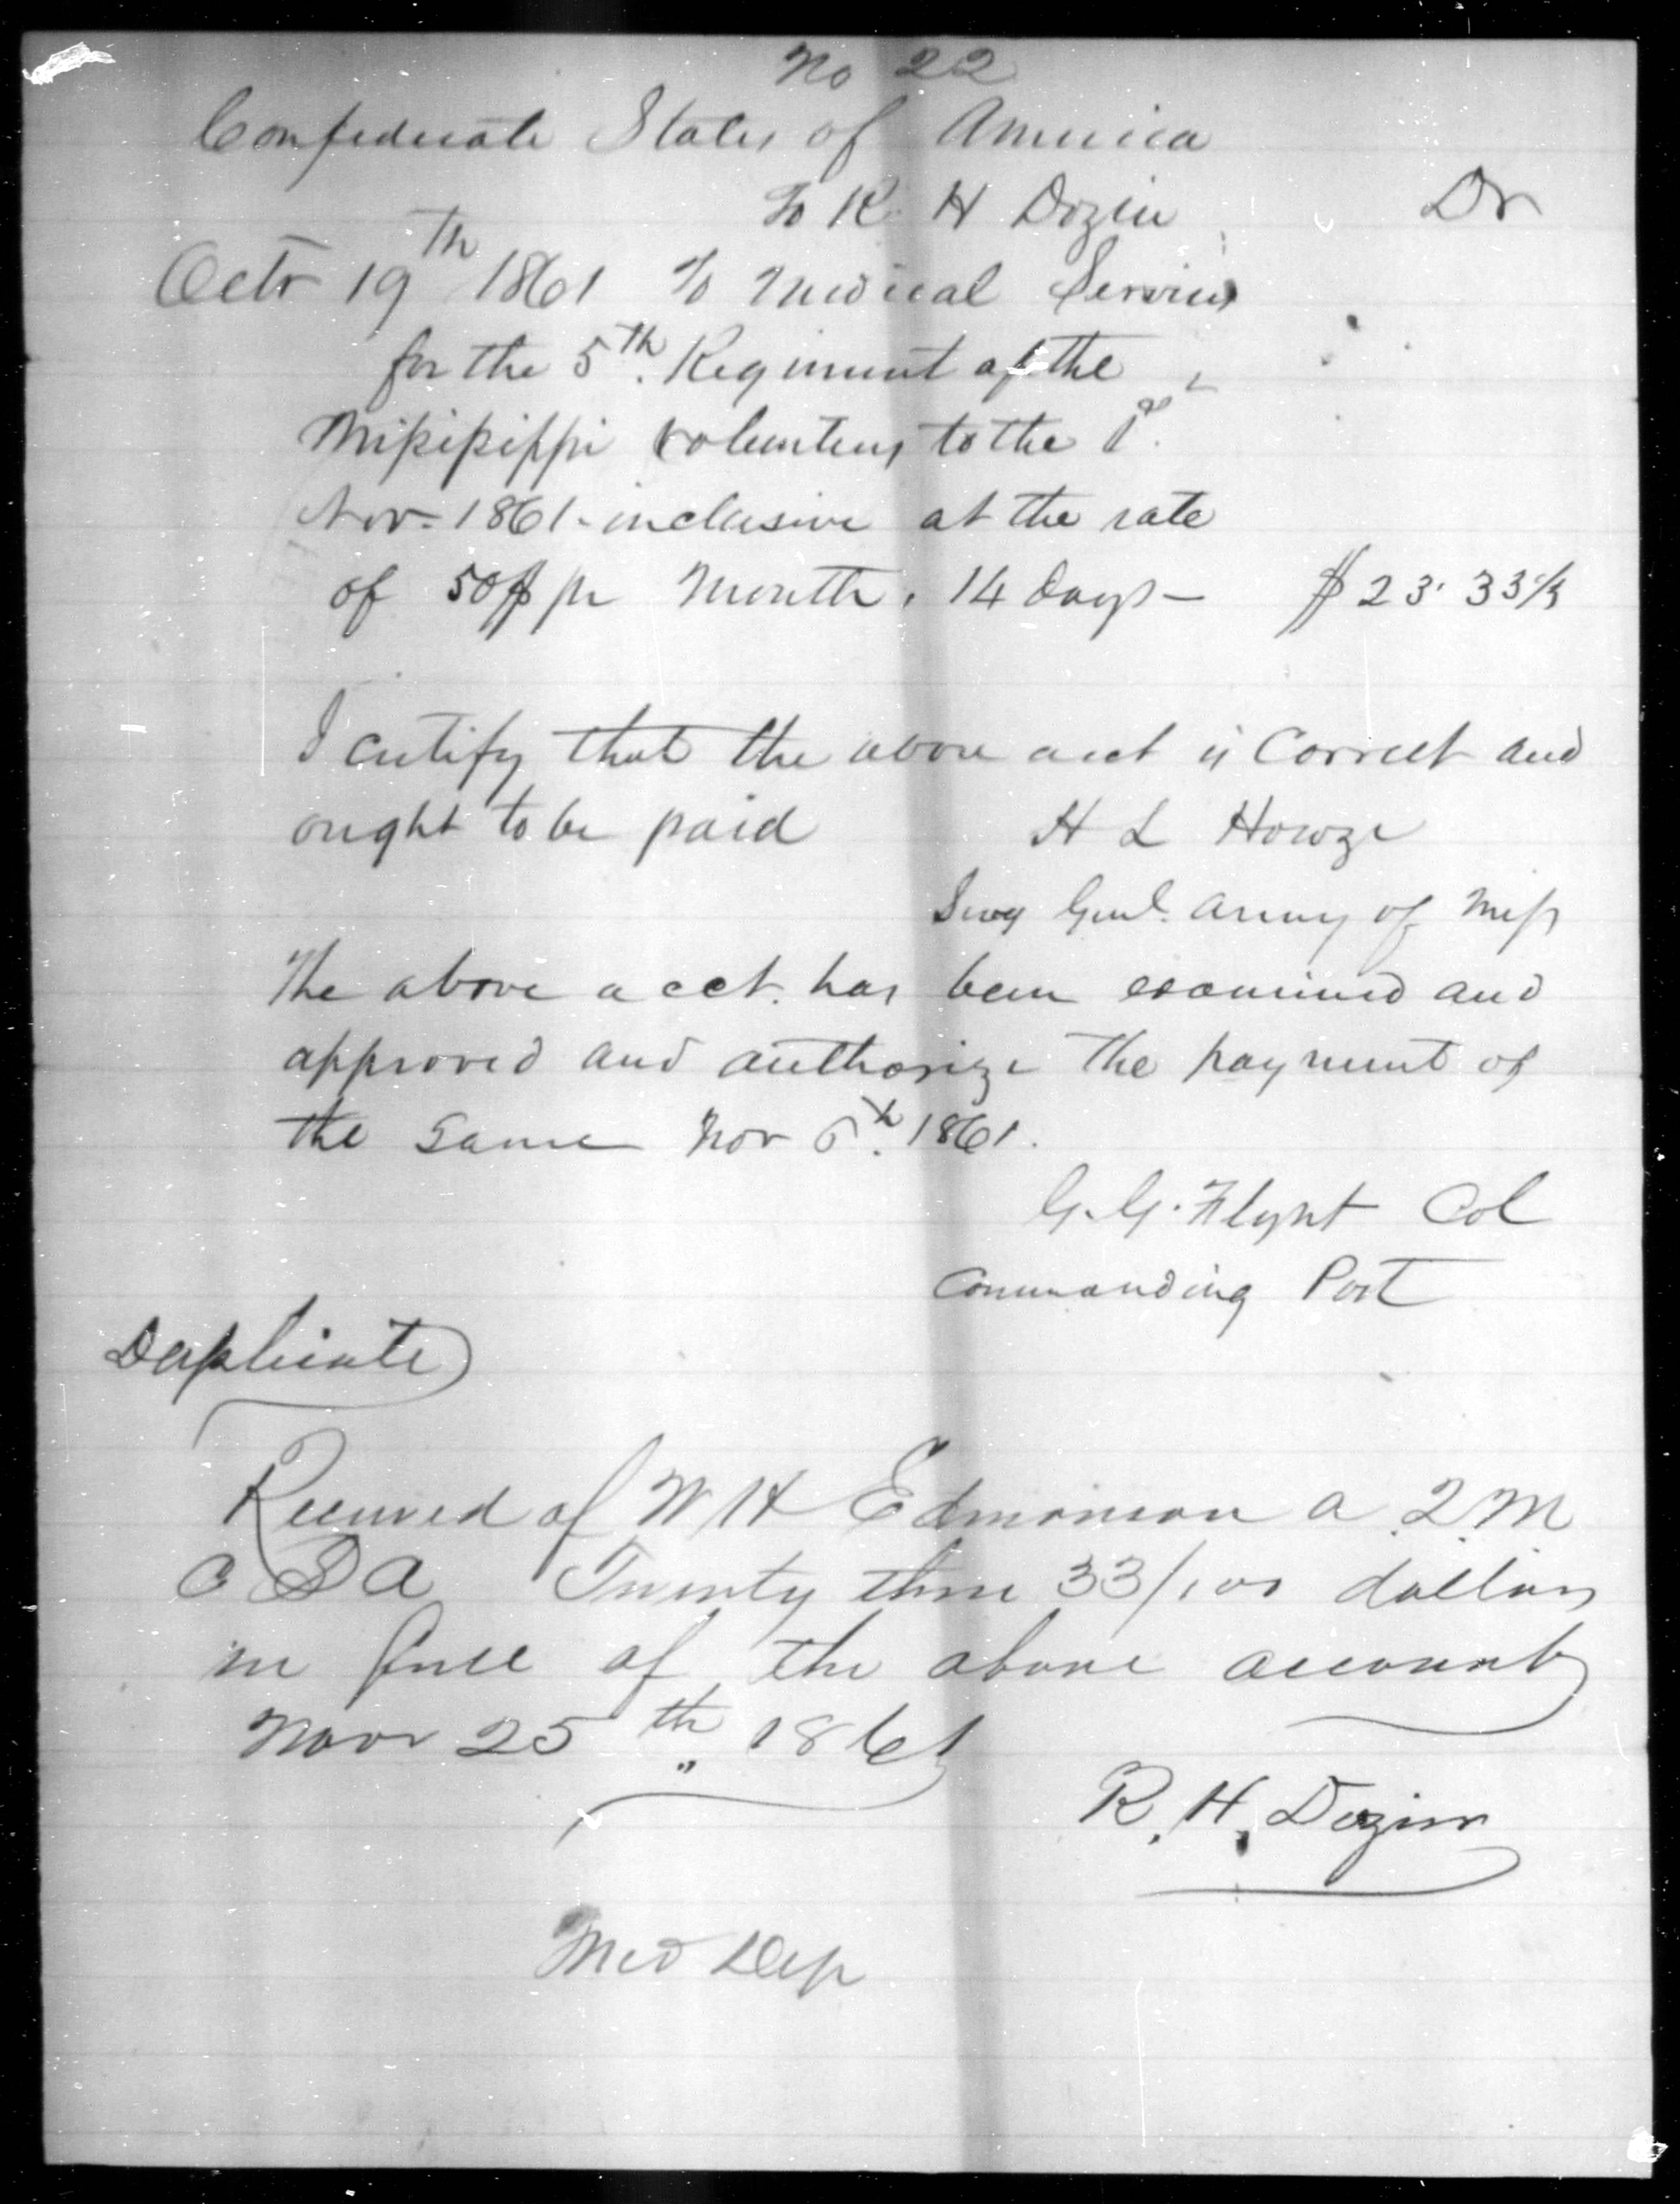 No 22
Confederate States of America
To R H Dozier Dr
Octr 19th 1861 To Medical Services
for the 5th Regiment of the
Mississippi Volunteers to the 1st
Nov. 1861 inclusive at the rate
of 50$ pr Month, 14 days — $23.33 1/3
I certify that the above acct is Correct and
ought to be paid H L Howze
Surg Genl. Army of Miss
The above acct. has been examined and
approved and authorize the payment of
the same Nov 6th. 1861.
G. G. Flynt Col
Commanding Post
Duplicate
Received of W H Edmonson A Q M
C S A Twenty three 33/100 dollars
in full of the above account
Novr 25th 1861
R. H. Dozier
Med Dep